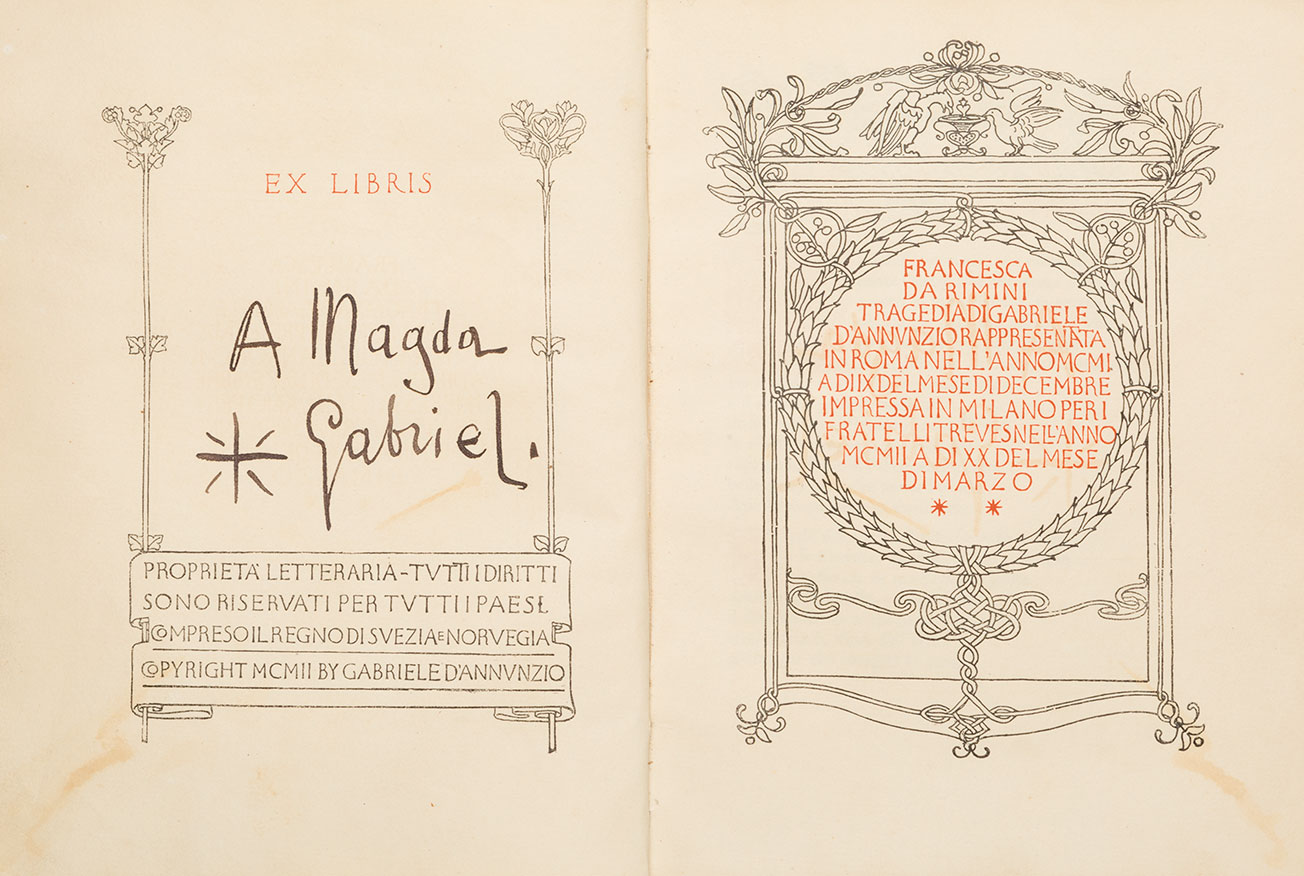 EX LIBRIS
A Magda
Gabriel.
PROPRIETA' LETTERARIA-TVTTI I DIRITTI
SONO RISERVATI PER TVTTI I PAESI.
COMPRESO IL REGNO DI SVEZIA E NORVEGIA
COPYRIGHT MCMII BY GABRIELE D'ANNVNZIO
FRANCESCA
DA RIMINI
TRAGEDIA DI GABRIELE
D'ANNVNZIO RAPPRESENTATA
IN ROMA NELL'ANNO MCMI.
A DI IX DEL MESE DI DECEMBRE
IMPRESSA IN MILANO PER I
FRATELLI TREVES NELL'ANNO
MCMII A DI XX DEL MESE
DI MARZO